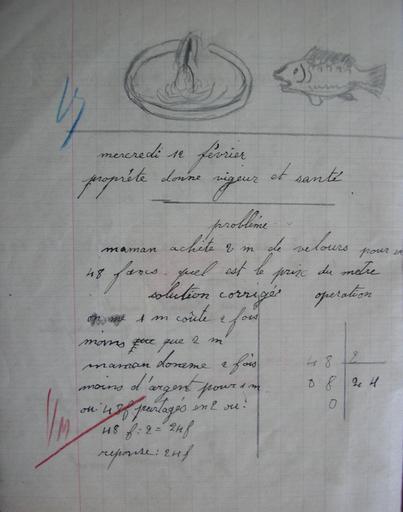 mercredi 12 février
propréte donne vigeur et santé
problème
maman achète 2 m de velours pour
48 francs quel est le prix du metre
solution corrigée operation
1 m coûte 2 fois
moins que 2 m
maman donne 2 fois 48 2
moins d'argent pour 1 m 08 24
ou 48f partagés en 2 ou: 0
48 f : 2 = 24f
reponse: 24f